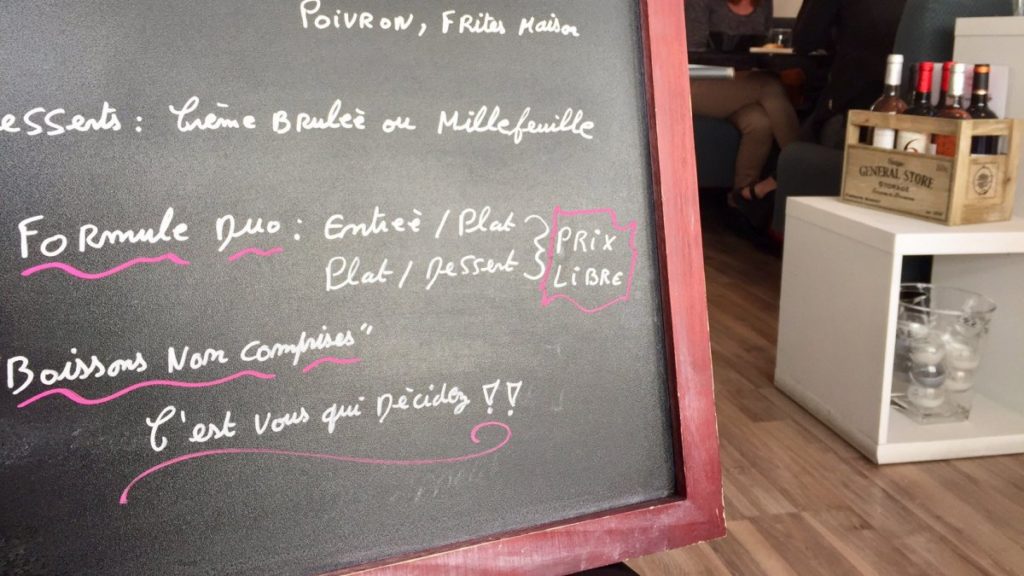 POIVRON, FRites Maison
esserts : Crème BRuleè ou Millefeuille
FORMule Duo : Entreè / Plat
Plat / Dessert
PRIX
LIBRE
"Boissons Non comprises"
C'est Vous qui Dècidez !!
GENERAL STORE
STORAGE